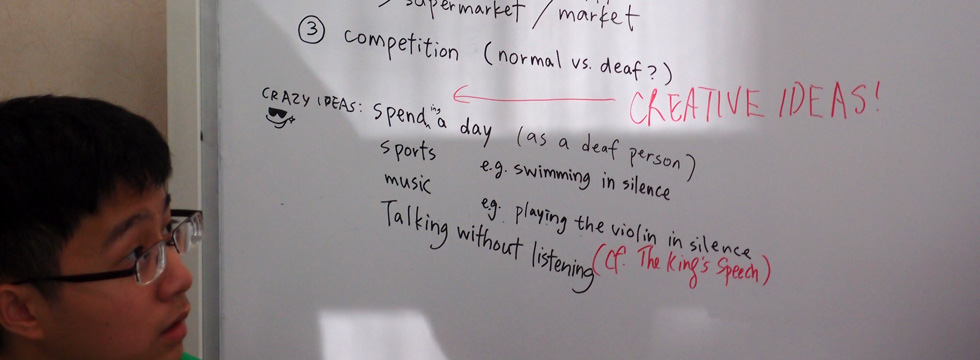 supermarket / market
③ competition (normal vs. deaf?)
CREATIVE IDEAS!
CRAZY IDEAS: spending a day (as a deaf person)
sports e.g. swimming in silence
music e.g. playing the violin in silence
Talking without listening (cf. The King's Speech)